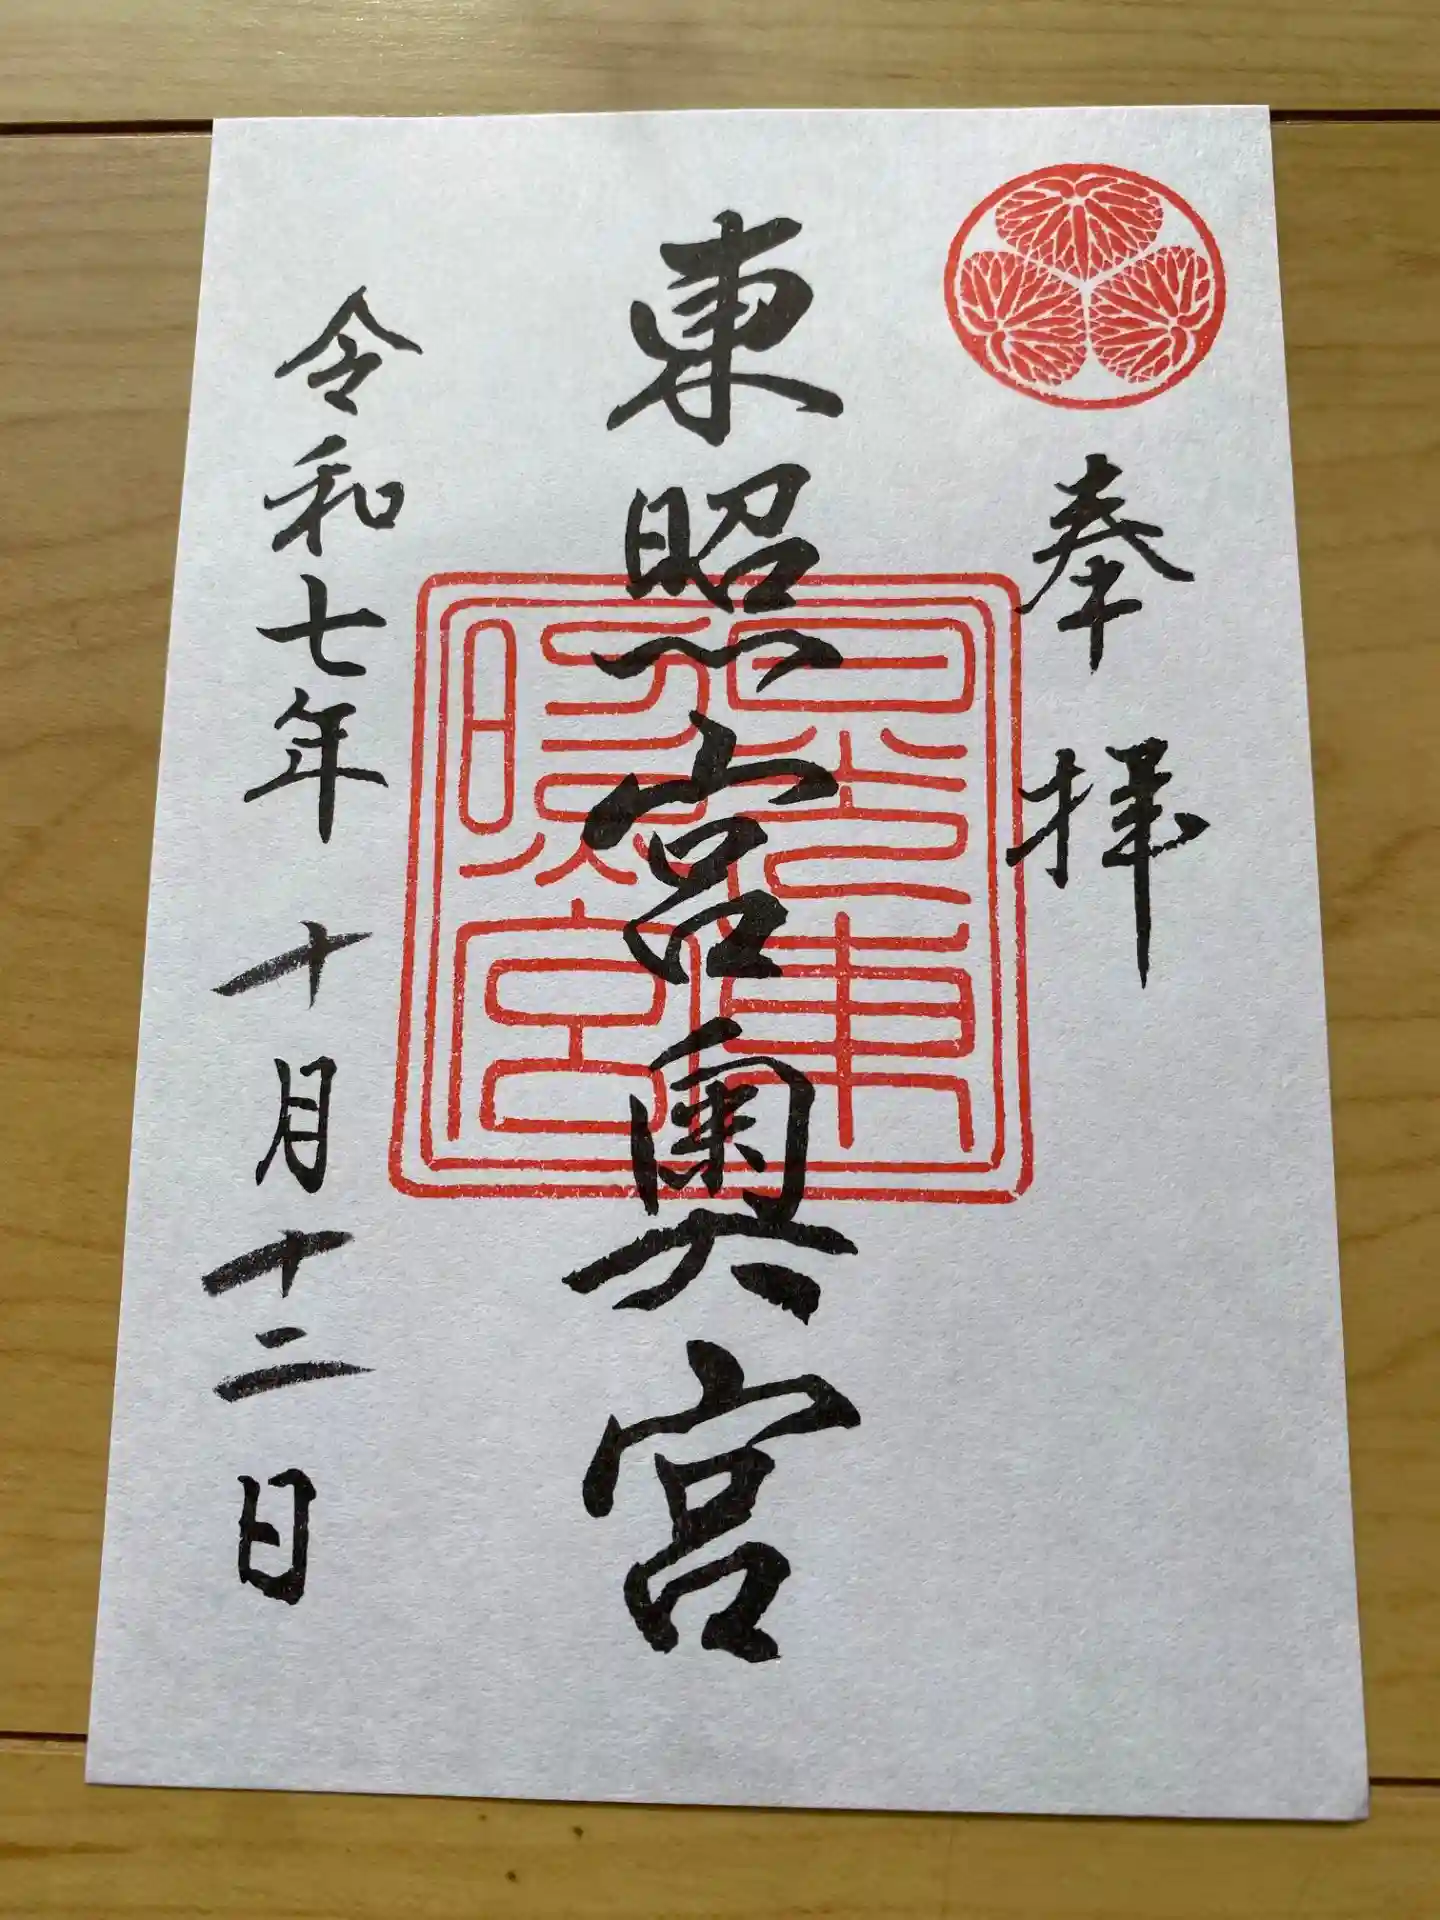 奉拝
東照宮奥宮
令和七年 十月十二日
日光東
照宮